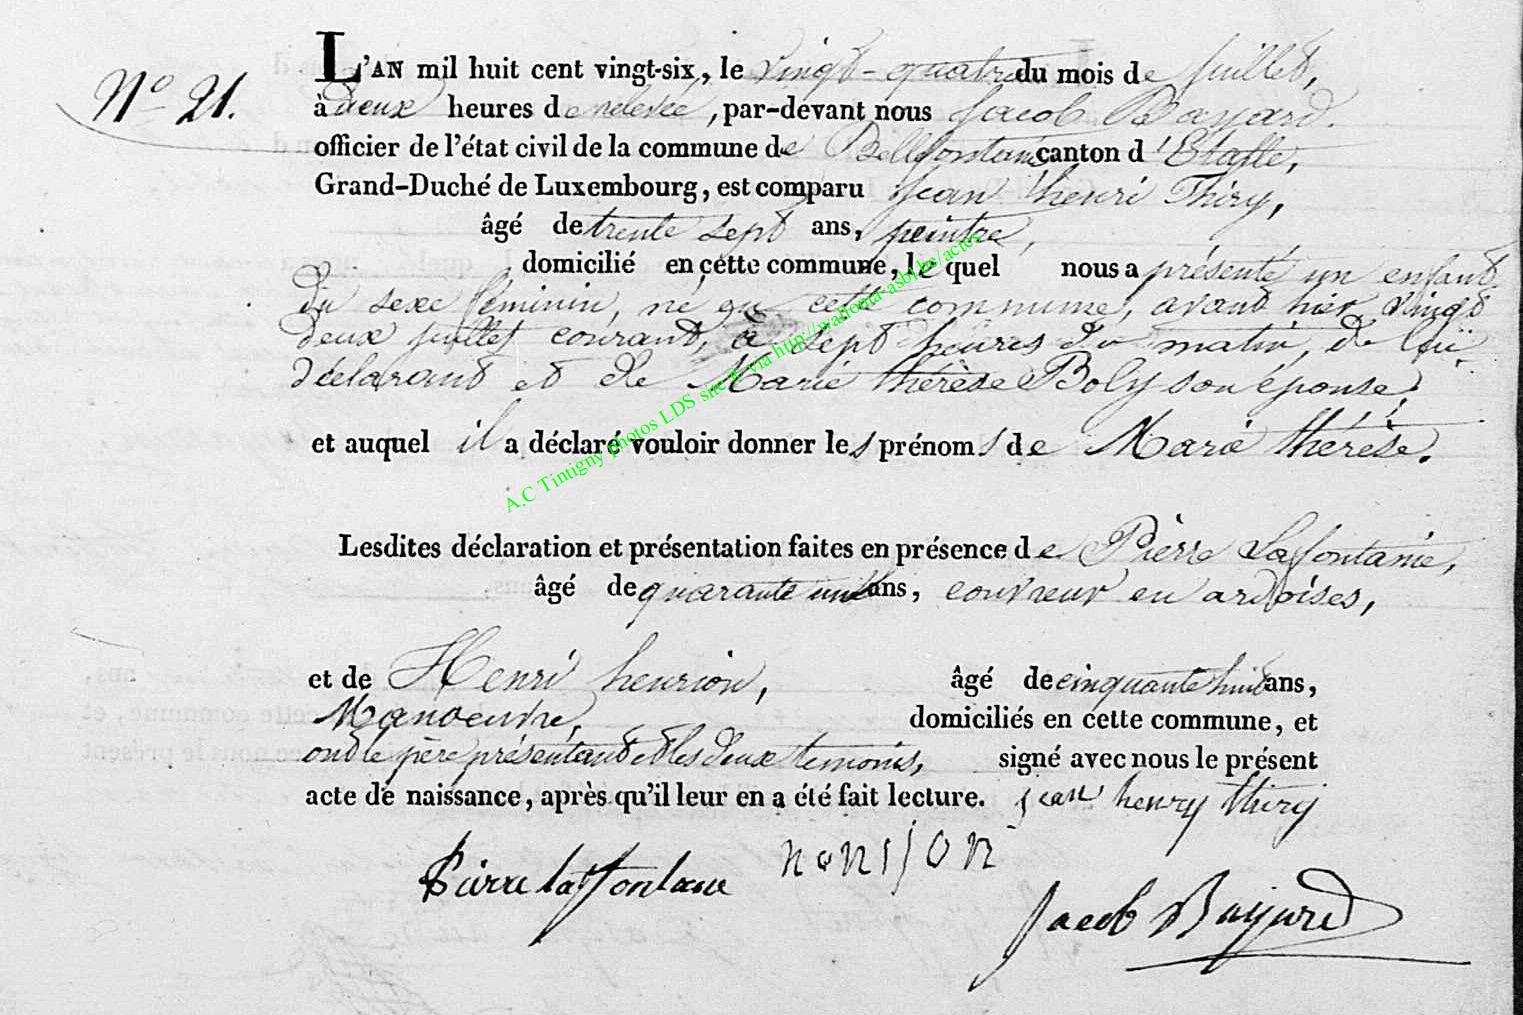 N° 21.
L'AN mil huit cent vingt-six, le vingt-quatre du mois de juillet,
à deux heures de relevée, par-devant nous Jacob Bayard.
officier de l'état civil de la commune de Bellefontaine canton d'Etalle,
Grand-Duché de Luxembourg, est comparu Jean henri Thiry,
âgé de trente sept ans, peintre,
domicilié en cette commune, le quel nous a présenté un enfant
du sexe féminin, né en cette commune, avant hier vingt
deux juillet courant, à sept heures du matin, de lui
déclarant et de Marie thérèse Boly son épouse,
et auquel il a déclaré vouloir donner les prénoms de Marie thérèse.
Lesdites déclaration et présentation faites en présence de Pierre Lafontaine,
âgé de quarante un ans, couvreur en ardoises,
et de Henri henrion, âgé de cinquante huit ans,
Manoeuvre, domiciliés en cette commune, et
ont le père présentant et les deux temoins, signé avec nous le présent
acte de naissance, après qu'il leur en a été fait lecture. jean henry thiry
Pierre laffontaine
Jacob Bayard
A.C Tintigny photos LDS site & via http://wallonia-asbl.be/actes